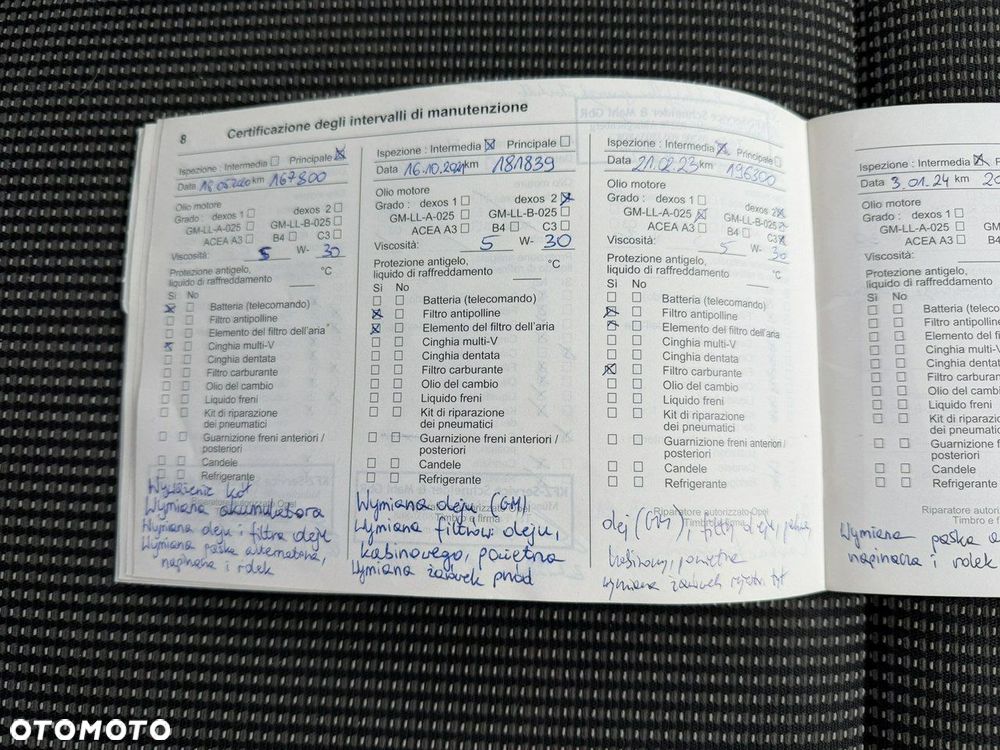 8 Certificazione degli intervalli di manutenzione
Ispezione : Intermedia Principale
Data km 167800
Olio motore
Grado : dexos 1 dexos 2
GM-LL-A-025 GM-LL-B-025
ACEA A3 B4 C3
Viscosità: 5 W- 30
Protezione antigelo,
liquido di raffreddamento °C
Sì No
Batteria (telecomando)
Filtro antipolline
Elemento del filtro dell'aria
Cinghia multi-V
Cinghia dentata
Filtro carburante
Olio del cambio
Liquido freni
Kit di riparazione
dei pneumatici
Guarnizione freni anteriori /
posteriori
Candele
Refrigerante
kół
Wymiana akumulatora
Wymiana oleju i filtra oleju
Wymiana paska alternatora,
napinacza i rolek
Ispezione : Intermedia Principale
Data 16.10.2021 km 181839
Olio motore
Grado : dexos 1 dexos 2
GM-LL-A-025 GM-LL-B-025
ACEA A3 B4 C3
Viscosità: 5 W- 30
Protezione antigelo,
liquido di raffreddamento °C
Sì No
Batteria (telecomando)
Filtro antipolline
Elemento del filtro dell'aria
Cinghia multi-V
Cinghia dentata
Filtro carburante
Olio del cambio
Liquido freni
Kit di riparazione
dei pneumatici
Guarnizione freni anteriori /
posteriori
Candele
Refrigerante
Wymiana oleju (GM)
Wymiana filtrów oleju,
kabinowego, powietrza
Wymiana żarówek przód
Ispezione : Intermedia Principale
Data 21.02.23 km 196300
Olio motore
Grado : dexos 1 dexos 2
GM-LL-A-025 GM-LL-B-025
ACEA A3 B4 C3
Viscosità: 5 W- 30
Protezione antigelo,
liquido di raffreddamento °C
Sì No
Batteria (telecomando)
Filtro antipolline
Elemento del filtro dell'aria
Cinghia multi-V
Cinghia dentata
Filtro carburante
Olio del cambio
Liquido freni
Kit di riparazione
dei pneumatici
Guarnizione freni anteriori /
posteriori
Candele
Refrigerante
Riparatore autorizzato Opel
Timbro e firma
olej (GM), filtry oleju, paliwa,
kabinowy, powietrza
wymiana żarówek rejestr. tył
Ispezione : Intermedia
Data 3.01.24 km 20
Olio motore
Grado : dexos 1
GM-LL-A-025
ACEA A3
Viscosità:
Protezione antigelo,
liquido di raffreddamento
Sì No
Batteria (teleco
Filtro antipolline
Elemento del fi
Cinghia multi-V
Cinghia dentata
Filtro carburant
Olio del cambi
Liquido freni
Kit di riparazio
dei pneumatici
Guarnizione f
posteriori
Candele
Refrigerante
Riparatore autoriz
Timbro e
Wymiana paska a
napinacza i rolek
OTOMOTO